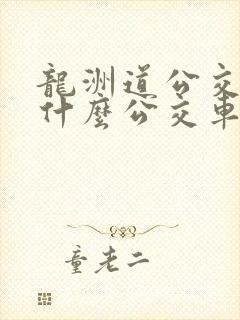 龍洲道公交
什麼公交車
童老二